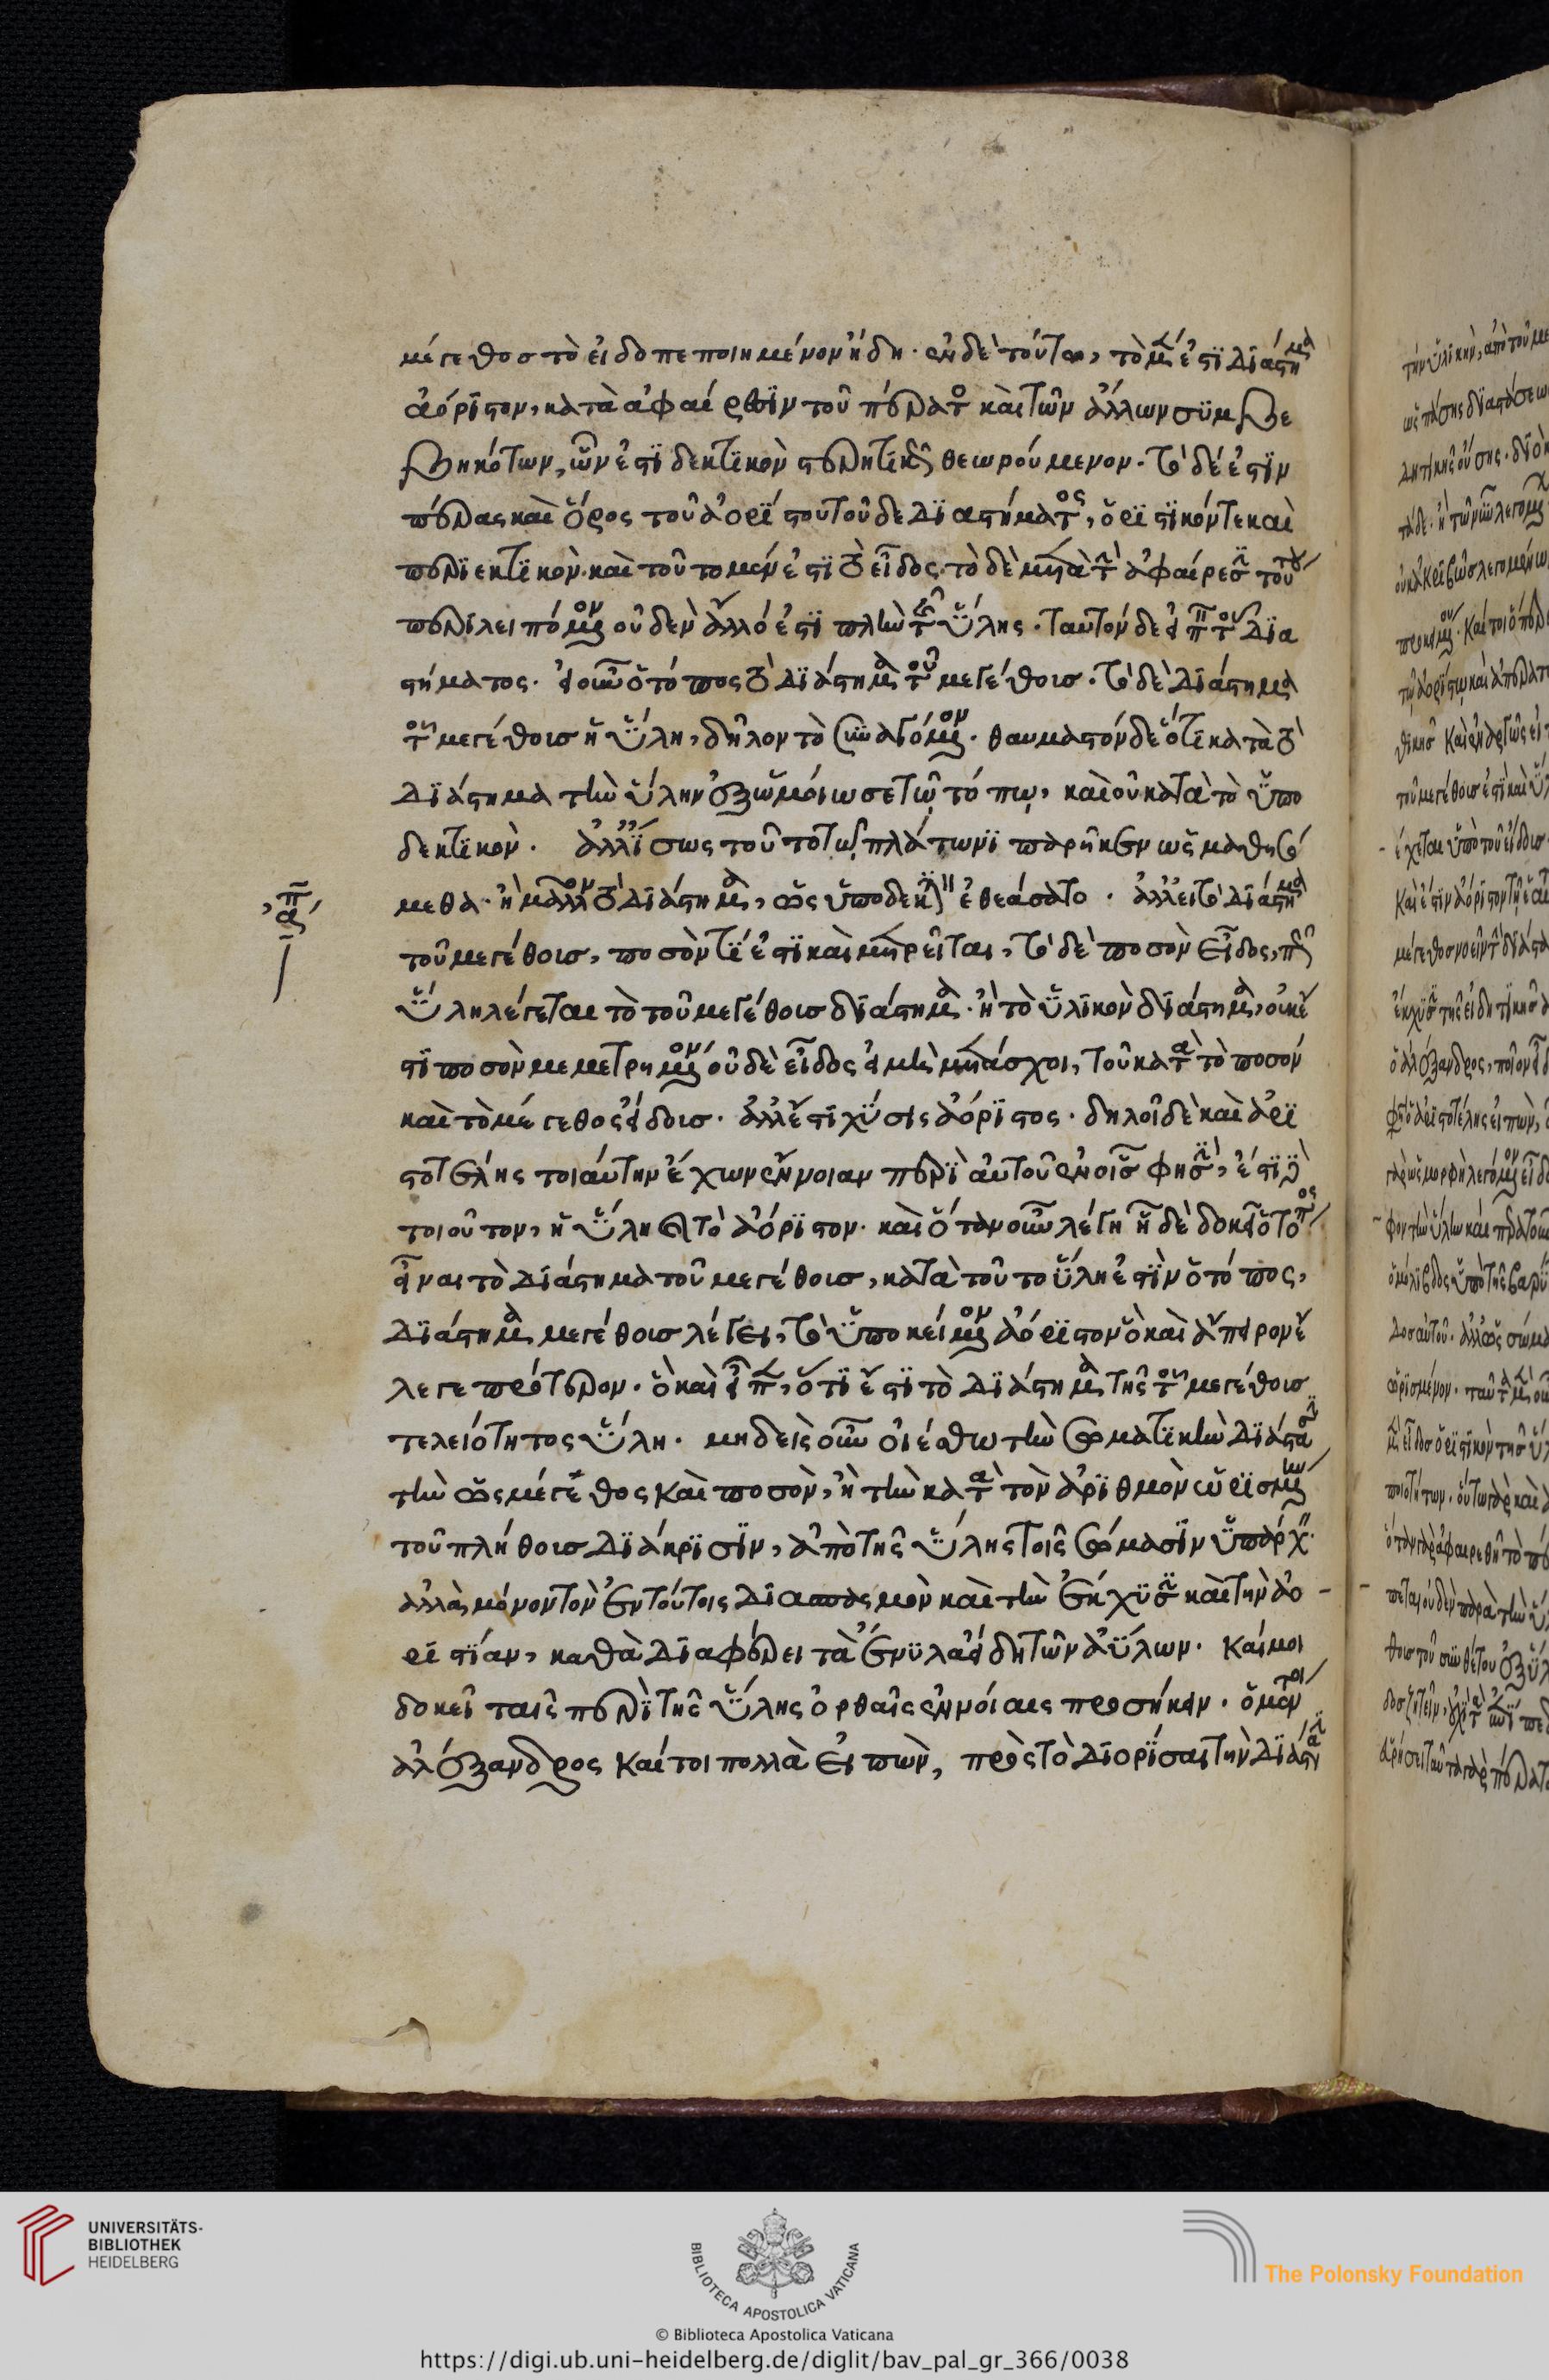 μέγεθος τὸ εἰδοπεποιημένον ἤδη. ἐν δὲ τούτω, τὸ μέν ἐστι διάστημα
ἀόριστον, κατὰ ἀφαίρεσιν τοῦ πέρατος καὶ τῶν ἄλλων συμβε
βηκότων, ὧν ἐστι δεκτικὸν στερητικῶς θεωρούμενον. τὸ δέ ἐστιν
πέρας καὶ ὅρος τοῦ ἀορίστου τοῦδε διαστήματος, ὁριστικόν τε καὶ
περιεκτικὸν. καὶ τοῦτο μέν ἐστι τὸ εἶδος. τὸ δὲ μετὰ τὴν ἀφαίρεσιν τούτου
περιλειπόμενον οὐδὲν ἄλλό ἐστι πλὴν τῆς ὕλης. ταυτὸν δὲ εἰπεῖν τοῦ δια
στήματος. εἰ οὖν ὁ τόπος τὸ διάστημα τοῦ μεγέθους. τὸ δὲ διάστημα
τοῦ μεγέθους ἡ ὕλη, δῆλον τὸ συναγόμενον. θαυμαστὸν δὲ ὅτι κατὰ τὸ
διάστημα τὴν ὕλην ἐξωμοίωσε τῷ τόπῳ, καὶ οὐ κατὰ τὸ ὑπο
δεκτικὸν. ἀλλ' ἴσως τοῦτο τῷ πλάτωνι παρῆκεν ὡς μαθησό
μεθα. ἢ μᾶλλον τὸ διάστημα, ὡς ὑποδεκτικὸν ἐθεάσατο. ἀλλ' εἰ τὸ διάστημα
ἀπ
τοῦ μεγέθους, ποσὸν τί ἐστι καὶ μετρεῖται, τὸ δὲ ποσὸν εἶδος, πῶς
ὕλη λέγεται τὸ τοῦ μεγέθους διάστημα. ἢ τὸ ὑλικὸν διάστημα, οὐκ ἔ
στι ποσὸν μεμετρημένον οὐδὲ εἶδος εἰ μὴ μετάσχοι, τοῦ κατὰ τὸ ποσόν
καὶ τὸ μέγεθος εἴδους. ἀλλ' ἔστι χύσις ἀόριστος. δηλοῖ δὲ καὶ ἀρι
στοτέλης τοιαύτην ἔχων ἔννοιαν περὶ αὐτοῦ ἐν οἷς φησιν, ἔστι δὲ
τοιοῦτον, ἡ ὕλη καὶ τὸ ἀόριστον. καὶ ὅταν οὖν λέγη ἧ δὲ δοκεῖ ὁ τόπος
εἶναι τὸ διάστημα τοῦ μεγέθους, κατὰ τοῦτο ὕλη ἐστὶν ὁ τόπος,
διάστημα μεγέθους λέγει, τὸ ὑποκείμενον ἀόριστον ὃ καὶ ἄπειρον ἔ
λεγε πρότερον. ὃ καὶ εἶπεν, ὅτι ἔστι τὸ διάστημα τῆς τοῦ μεγέθους
τελειότητος ὕλη. μηδεὶς οὖν οἰέσθω τὴν σωματικὴν διάστασιν
τὴν ὡς μέγεθος καὶ ποσὸν, ἢ τὴν κατὰ τὸν ἀριθμὸν ὡρισμένην
τοῦ πλήθους διάκρισιν, ἀπὸ τῆς ὕλης τοῖς σώμασιν ὑπάρχειν.
ἀλλὰ μόνον τὸν ἐν τούτοις διασπασμὸν καὶ τὴν ἔκχυσιν καὶ τὴν ἀο
ριστίαν, καθὰ διαφέρει τὰ ἔνυλα εἴδη τῶν ἀΰλων. καί μοι
δοκεῖ ταῖς περὶ τῆς ὕλης ὀρθαῖς ἐννοίαις προσήκειν. ὁ μέντοι
ἀλέξανδρος καίτοι πολλὰ εἰπὼν, πρὸς τὸ διορίσαι τὴν διάστασιν
UNIVERSITÄTS-
BIBLIOTHEK
HEIDELBERG
BIBLIOTECA APOSTOLICA VATICANA
The Polonsky Foundation
© Biblioteca Apostolica Vaticana
https://digi.ub.uni-heidelberg.de/diglit/bav_pal_gr_366/0038